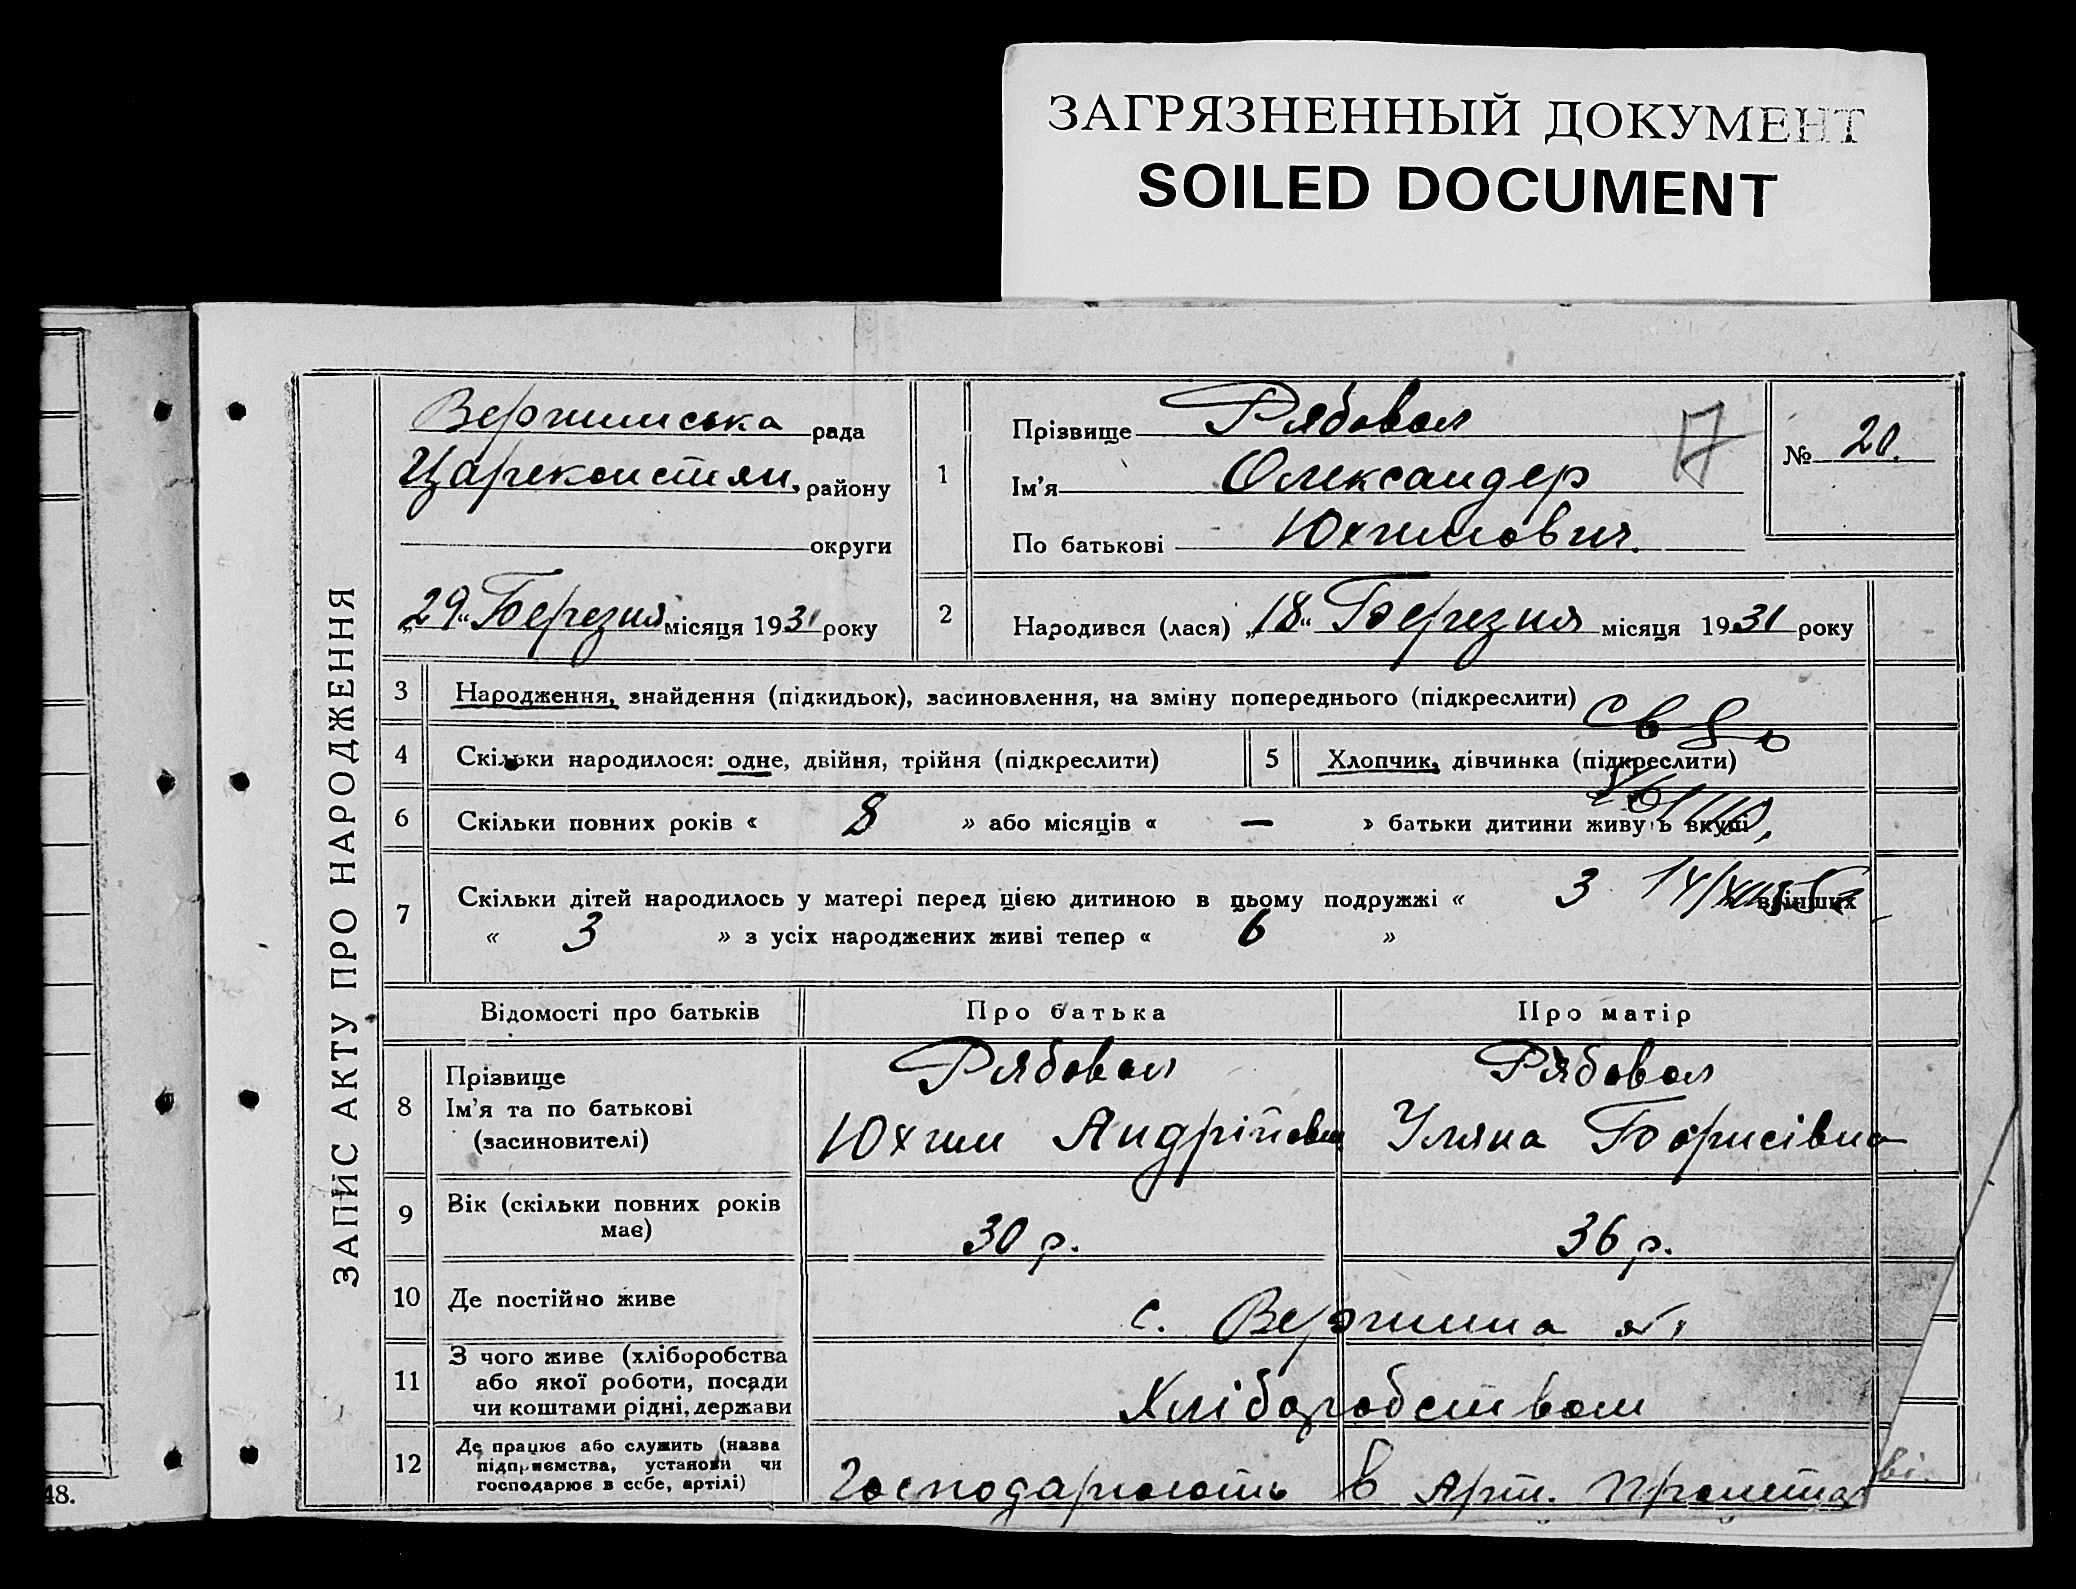 ЗАГРЯЗНЕННЫЙ ДОКУМЕНТ
SOILED DOCUMENT
ЗАПИС АКТУ ПРО НАРОДЖЕННЯ
Вершинська рада
Царекон стян, району
округи
„29“ Березня місяця 1931 року
1
Прізвище Рябовол
Ім'я Олександер
По батькові Юхимович.
№ 20.
2
Народився (лася) „18“ Березня місяця 1931 року
3 Народження, знайдення (підкидьок), засиновлення, на зміну попереднього (підкреслити)
4 Скільки народилося: одне, двійня, трійня (підкреслити)
5 Хлопчик, дівчинка (підкреслити)
6 Скільки повних років « 8 » або місяців « — » батьки дитини живуть вкупі
7 Скільки дітей народилось у матері перед цією дитиною в цьому подружжі « 3 в інших
« 3 » з усіх народжених живі тепер « 6 »
Відомості про батьків Про батька Про матір
8 Прізвище Рябовол Рябовол
Ім'я та по батькові Юхим Андрійович Уляна Борисівна
(засиновителі)
9 Вік (скільки повних років має) 30 р. 36 р.
10 Де постійно живе с. Вершина
11 З чого живе (хліборобства
або якої роботи, посади
чи коштами рідні, держави Хліборобством
12 Де працює або служить (назва
підприємства, установи чи
господарює в себе, артілі) Господарюють в Арт.
48.